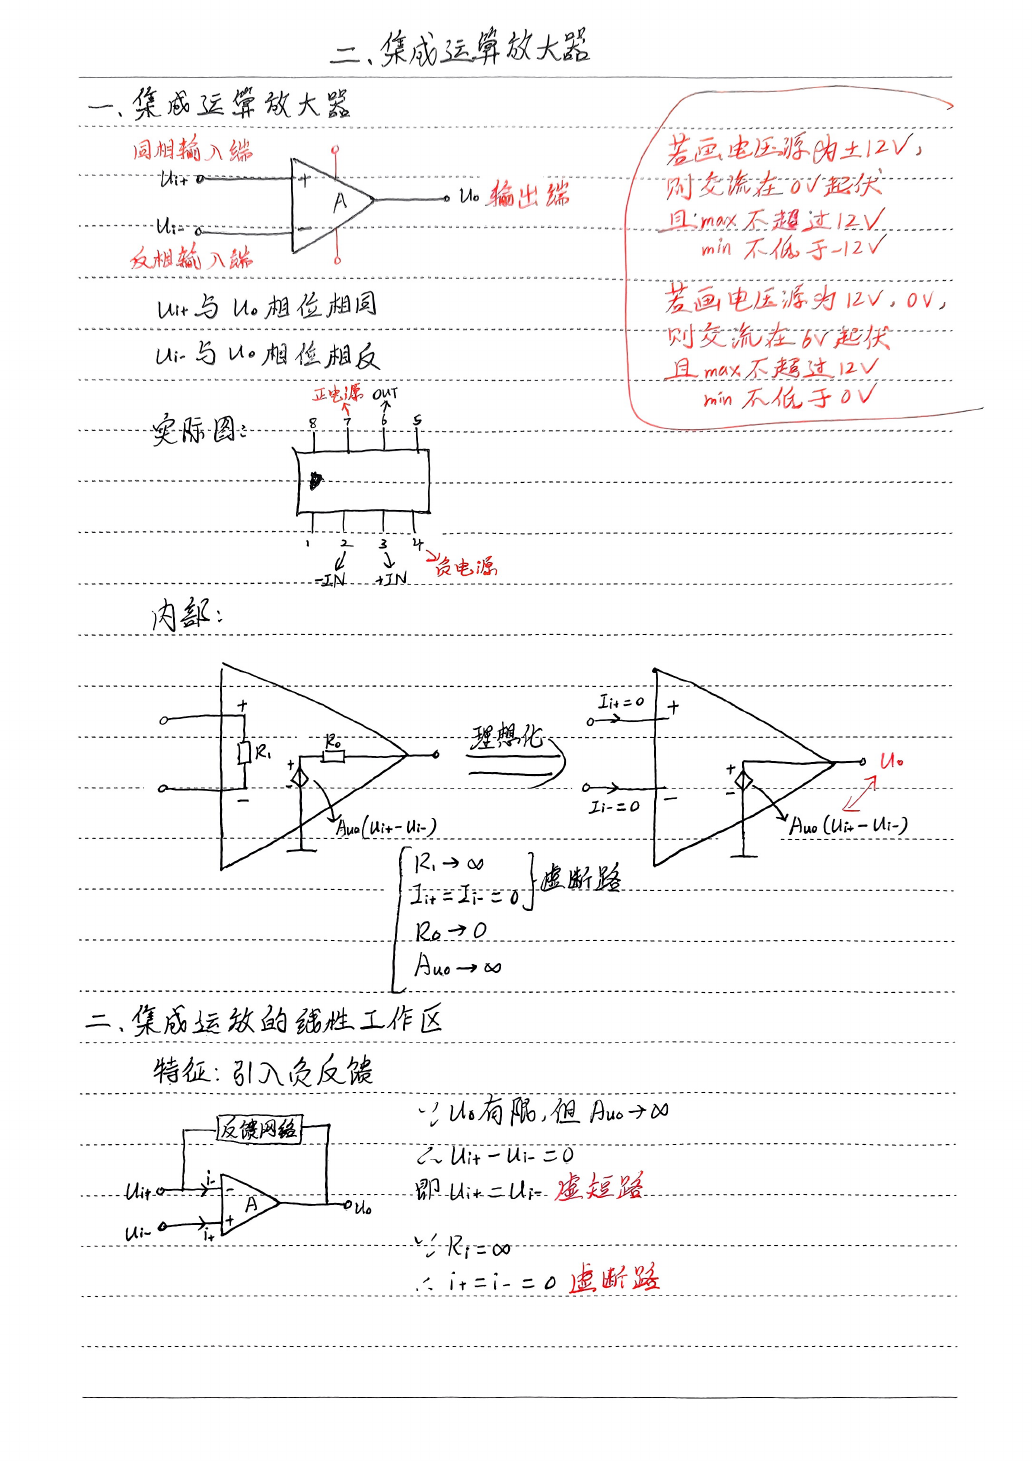 二、集成运算放大器
一、集成运算放大器
同相输入端
Ui+
+
A
Uo 输出端
Ui-
-
反相输入端
若画电压源为±12V,
则交流在0V起伏
且:max不超过12V
min不低于-12V
若画电压源为12V,0V,
则交流在6V起伏
且max不超过12V
min不低于0V
Ui+与Uo相位相同
Ui-与Uo相位相反
实际图:
正电源 OUT
8 7 6 5
1 2 3 4
-IN +IN 负电源
内部:
+
R1
-
Ro
+
-
Auo(Ui+-Ui-)
理想化
Ii+=0
+
Ii-=0
-
+
-
Uo
Auo(Ui+-Ui-)
R1→∞
Ii+=Ii-=0
虚断路
Ro→0
Auo→∞
二、集成运放的线性工作区
特征:引入负反馈
反馈网络
Ui+
i-
-
A
Uo
Ui-
i+
+
∵Uo有限,但Auo→∞
∴Ui+-Ui-=0
即Ui+=Ui- 虚短路
∵Ri=∞
∴i+=i-=0 虚断路